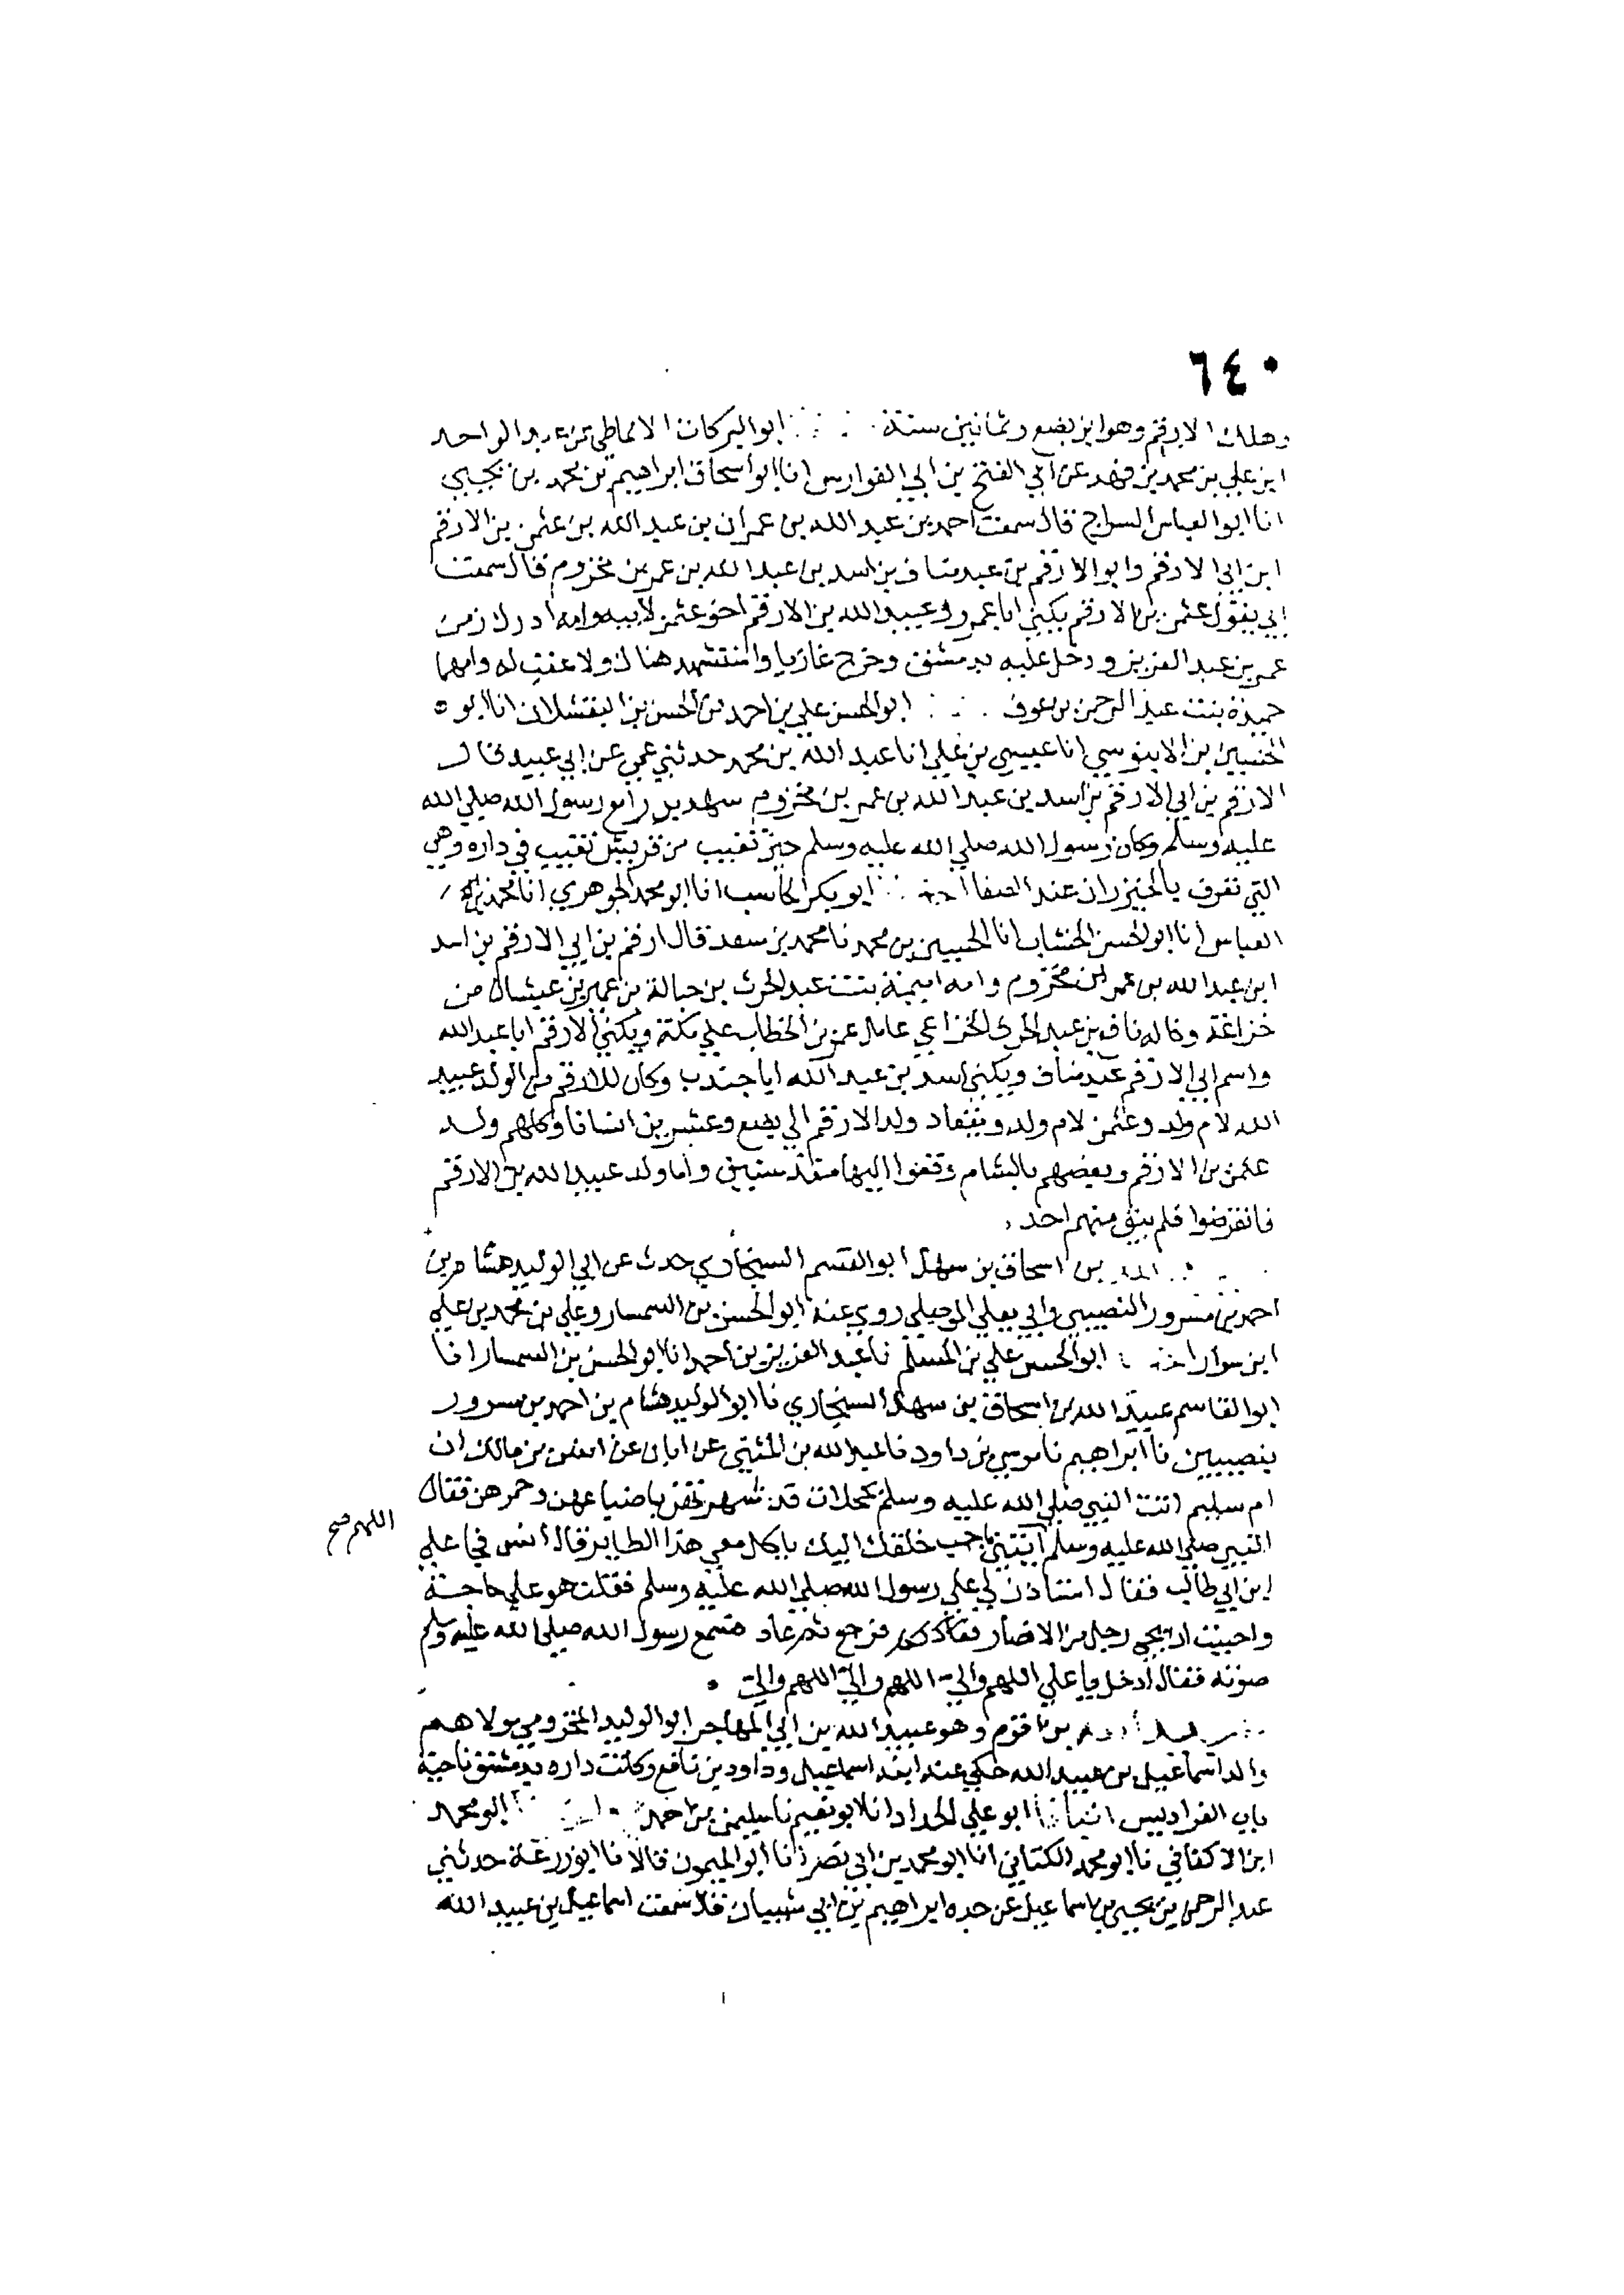 ٦٤٠
وهلك الارقم وهو ابن بضع وثمانين سنة ابو البركات الانماطي عن عبد الواحد
ابن علي بن محمد بن فهد عن ابي الفتح بن ابي الفوارس انا ابو اسحاق ابراهيم بن محمد بن يحيى
انا ابو العباس السراج قال سمعت احمد بن عبد الله بن عمران بن عبد الله بن عثمن بن الارقم
ابن ابي الارقم وابو الارقم بن عبد مناف بن اسد بن عبد الله بن عمر بن مخزوم قال سمعت
ابي يقول عثمن بن الارقم يكنى ابا عمرو وعبيد الله بن الارقم اخو عثمن لابيه وامه ادرك زمن
عمر بن عبد العزيز ودخل عليه بدمشق وخرج غازيا واستشهد هناك ولا عقب له وامهما
حميدة بنت عبد الرحمن بن عوف ابو الحسن علي بن احمد بن الحسن بن البقشلان انا ابو
الحسين بن الابنوسي انا عيسى بن علي انا عبد الله بن محمد حدثني عمي عن ابي عبيد قال
الارقم بن ابي الارقم بن اسد بن عبد الله بن عمر بن مخزوم شهد بدرا مع رسول الله صلى الله
عليه وسلم وكان رسول الله صلى الله عليه وسلم حين تغيب من قريش تغيب في داره وهي
التي تعرف بالخيزران عند الصفا ابو بكر الحاسب انا ابو محمد الجوهري انا محمد بن
العباس انا ابو الحسن الخشاب انا الحسين بن محمد نا محمد بن سعد قال ارقم بن ابي الارقم بن اسد
ابن عبد الله بن عمر ابن مخزوم وامه اميمة بنت عبد الحرث بن حبالة بن عمير بن غبشان من
خزاعة وخاله نافع بن عبد الحرث الخزاعي عامل عمر بن الخطاب على مكة ويكنى الارقم ابا عبد الله
واسم ابي الارقم عبد مناف ويكنى اسد بن عبد الله ابا جندب وكان للارقم من الولد عبيد
الله لام ولد وعثمن لام ولد ويتعاد ولد الارقم الى بضع وعشرين انسانا وكلهم ولد
عثمن بن الارقم وبعضهم بالشام وقعوا اليها منذ سنين واما ولد عبيد الله بن الارقم
فانقرضوا فلم يبق منهم احد
الله بن اسحاق بن سهل ابو القسم السنجاري حدث عن ابي الوليد هشام بن
احمد بن مسرور النصيبي وابي يعلي الموصلي روى عنه ابو الحسن بن السمسار وعلي بن محمد بن علي
ابن سوار ابو الحسن علي بن المسلم نا عبد العزيز بن احمد انا ابو الحسن بن السمسار انا
ابو القاسم عبيد الله بن اسحاق بن سهل السنجاري نا ابو الوليد هشام بن احمد بن مسرور
بنصيبين نا ابراهيم نا موسى بن داود نا عبد الله بن المثنى عن ابان عن انس بن مالك ان
ام سليم اتت النبي صلى الله عليه وسلم بحجلات قد شوتهن باضباعهن وخمرهن فقال
النبي صلى الله عليه وسلم ائتني باحب خلقك اليك ياكل معي هذا الطاير قال انس فجا علي
اللهم صح
ابن ابي طالب فقال استاذن لي على رسول الله صلى الله عليه وسلم فقلت هو على حاجة
واحببت ان يجي رجل من الانصار فرجع ثم عاد فسمع رسول الله صلى الله عليه وسلم
صوته فقال ادخل يا علي اللهم والي اللهم والي اللهم والي
بن اقرم وهو عبيد الله بن ابي المهاجر ابو الوليد المخزومي مولاهم
والد اسماعيل بن عبيد الله حكى عنه ابنه اسماعيل وداود بن نافع وكانت داره بدمشق ناحية
باب الفراديس انبانا ابو علي الحداد انا ابو نعيم نا سليمن بن احمد ابو محمد
ابن الاكفاني نا ابو محمد الكتاني انا ابو محمد بن ابي نصر انا ابو الميمون قالا نا ابو زرعة حدثني
عبد الرحمن بن يحيى بن اسماعيل عن جده ابراهيم بن ابي شيبان قال سمعت اسماعيل بن عبيد الله